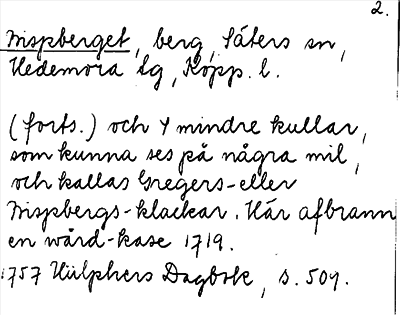 2.
Bispberget, berg, Säters sn,
Hedemora tg, Kopp. l.
(forts.) och 4 mindre kullar,
som kunna ses på några mil,
och kallas Gregers- eller
Bispbergs-klackar. Här afbrann
en wård-kase 1719.
1757 Hülphers Dagbok, s. 509.